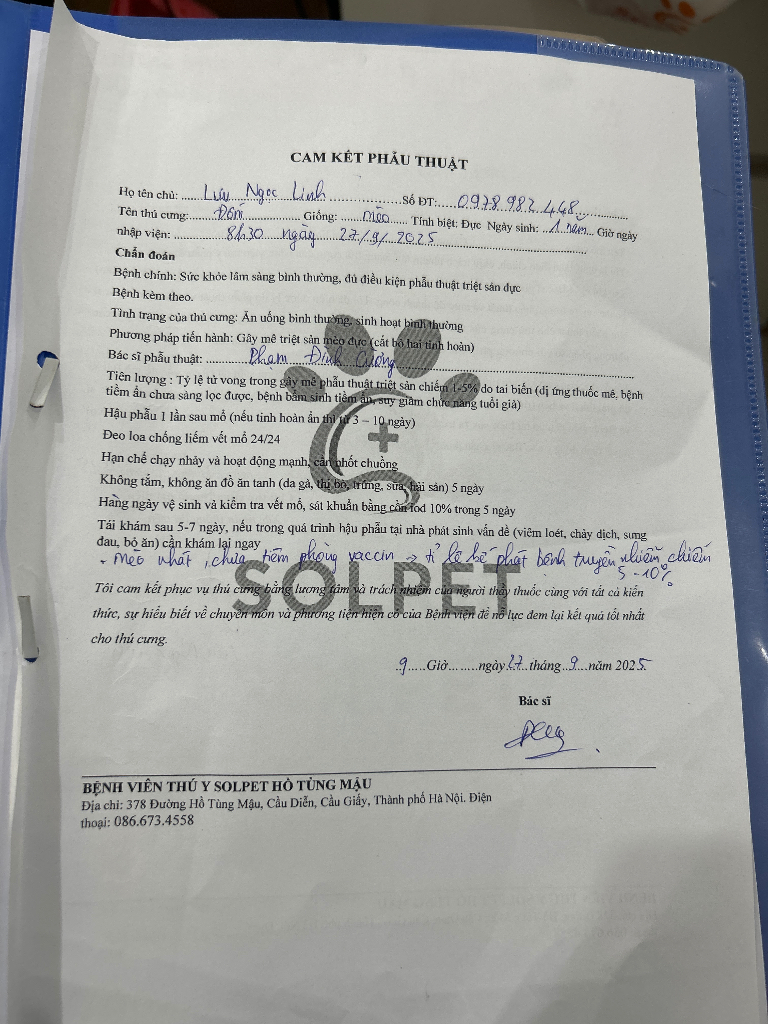 CAM KẾT PHẪU THUẬT
Họ tên chủ: ......Lưu Ngọc Linh....................Số ĐT:.....0978 982 448...............
Tên thú cưng:......Đốm.................. Giống: .......mèo... Tính biệt: Đực Ngày sinh: ..1 năm... Giờ ngày
nhập viện: ............8h30 ngày 27/9/2025............................
Chẩn đoán
Bệnh chính: Sức khỏe lâm sàng bình thường, đủ điều kiện phẫu thuật triệt sản đực
Bệnh kèm theo.
Tình trạng của thú cưng: Ăn uống bình thường, sinh hoạt bình thường
Phương pháp tiến hành: Gây mê triệt sản mèo đực (cắt bỏ hai tinh hoàn)
Bác sĩ phẫu thuật: ............Phạm Đình Cường............................
Tiên lượng : Tỷ lệ tử vong trong gây mê phẫu thuật triệt sản chiếm 1-5% do tai biến (dị ứng thuốc mê, bệnh
tiềm ẩn chưa sàng lọc được, bệnh bẩm sinh tiềm ẩn, suy giảm chức năng tuổi già)
Hậu phẫu 1 lần sau mổ (nếu tinh hoàn ẩn thì từ 3 – 10 ngày)
Đeo loa chống liếm vết mổ 24/24
Hạn chế chạy nhảy và hoạt động mạnh, cần nhốt chuồng
Không tắm, không ăn đồ ăn tanh (da gà, thịt bò, trứng, sữa, hải sản) 5 ngày
Hàng ngày vệ sinh và kiểm tra vết mổ, sát khuẩn bằng cồn Iod 10% trong 5 ngày
Tái khám sau 5-7 ngày, nếu trong quá trình hậu phẫu tại nhà phát sinh vấn đề (viêm loét, chảy dịch, sưng
đau, bỏ ăn) cần khám lại ngay
+ Mèo nhát, chưa tiêm phòng vaccin → tỉ lệ bộc phát bệnh truyền nhiễm chiếm
5 - 10%
SOLPET
Tôi cam kết phục vụ thú cưng bằng lương tâm và trách nhiệm của người thầy thuốc cùng với tất cả kiến
thức, sự hiểu biết về chuyên môn và phương tiện hiện có của Bệnh viện để nỗ lực đem lại kết quả tốt nhất
cho thú cưng.
.9.....Giờ........ngày 27..tháng..9...năm 2025
Bác sĩ
BỆNH VIỆN THÚ Y SOLPET HỒ TÙNG MẬU
Địa chỉ: 378 Đường Hồ Tùng Mậu, Cầu Diễn, Cầu Giấy, Thành phố Hà Nội. Điện
thoại: 086.673.4558